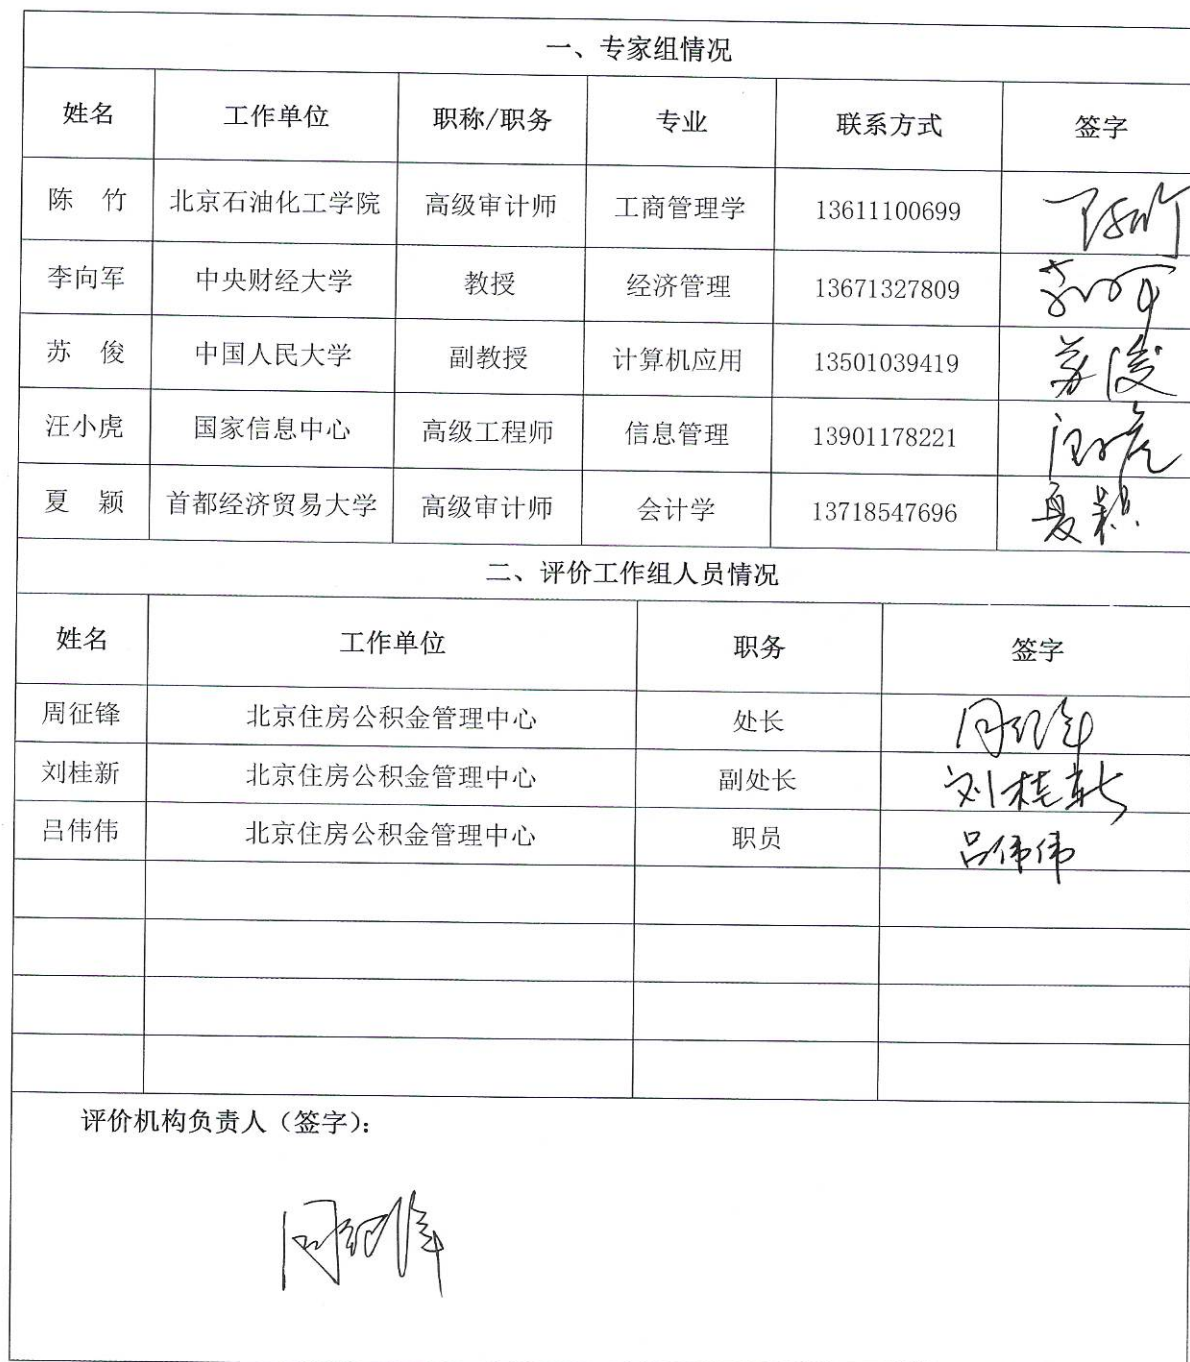 一、专家组情况
姓名 工作单位 职称/职务 专业 联系方式 签字
陈 竹 北京石油化工学院 高级审计师 工商管理学 13611100699 陈竹
李向军 中央财经大学 教授 经济管理 13671327809
苏 俊 中国人民大学 副教授 计算机应用 13501039419 苏俊
汪小虎 国家信息中心 高级工程师 信息管理 13901178221 汪小虎
夏 颖 首都经济贸易大学 高级审计师 会计学 13718547696 夏颖
二、评价工作组人员情况
姓名 工作单位 职务 签字
周征锋 北京住房公积金管理中心 处长
刘桂新 北京住房公积金管理中心 副处长 刘桂新
吕伟伟 北京住房公积金管理中心 职员 吕伟伟
评价机构负责人（签字）：